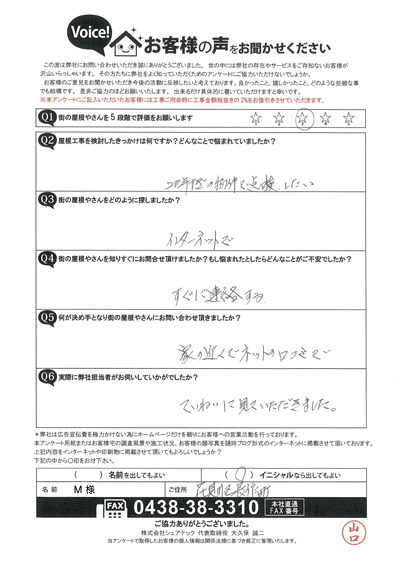 Voice!
お客様の声をお聞かせください
この度は弊社にお問い合わせいただき誠にありがとうございました。世の中には弊社の存在やサービスをご存知ないお客様が
沢山いらっしゃいます。その方たちに弊社をよく知っていただくためのアンケートにご協力いただけないでしょうか。
お客様のご意見をお聞かせいただき今後の活動に反映したいと考えております。良かったこと、嬉しかったこと、どのような些細な事
でも結構です。是非ご協力のほどお願いいたします。出来るだけ具体的に書いていただけますと幸いです。
※本アンケートにご記入いただいたお客様には工事ご用命時に工事金額税抜きの2%をお値引きさせていただきます。
Q1 街の屋根やさんを5段階で評価をお願いします
1 2 3 4 5
Q2 屋根工事を検討したきっかけは何ですか?どんなことで悩まれていましたか?
の物件で点検したい
Q3 街の屋根やさんをどのように探しましたか?
インターネットで
Q4 街の屋根やさんを知りすぐにお問合せ頂けましたか?もし悩まれたとしたらどんなことがご不安でしたか?
すぐに連絡する
Q5 何が決め手となり街の屋根やさんにお問い合わせ頂きましたか?
家の近くでネットの口コミで
Q6 実際に弊社担当者がお伺いしていかがでしたか?
ていねいに見ていただきました。
※弊社は広告宣伝費を極力かけない為にホームページだけを頼りにお客様への営業活動を行っております。
本アンケート用紙またはお客様宅の調査風景や施工状況、お客様の顔写真を随時ブログ形式のインターネットに掲載させて頂いております。
上記内容をインターネットや印刷物に掲載させて頂いてもよろしいでしょうか?
下記の中から〇印をお付け下さい。
( ) 名前を出してもよい ( ○ ) イニシャルなら出してもよい
名前 M 様 ご住所
FAX 0438-38-3310 本社直通FAX番号
ご協力ありがとうございました。
株式会社シェアテック 代表取締役 大久保 誠二
当アンケートで取得したお客様の個人情報は関係法規に基づき厳正に管理いたします。
山口